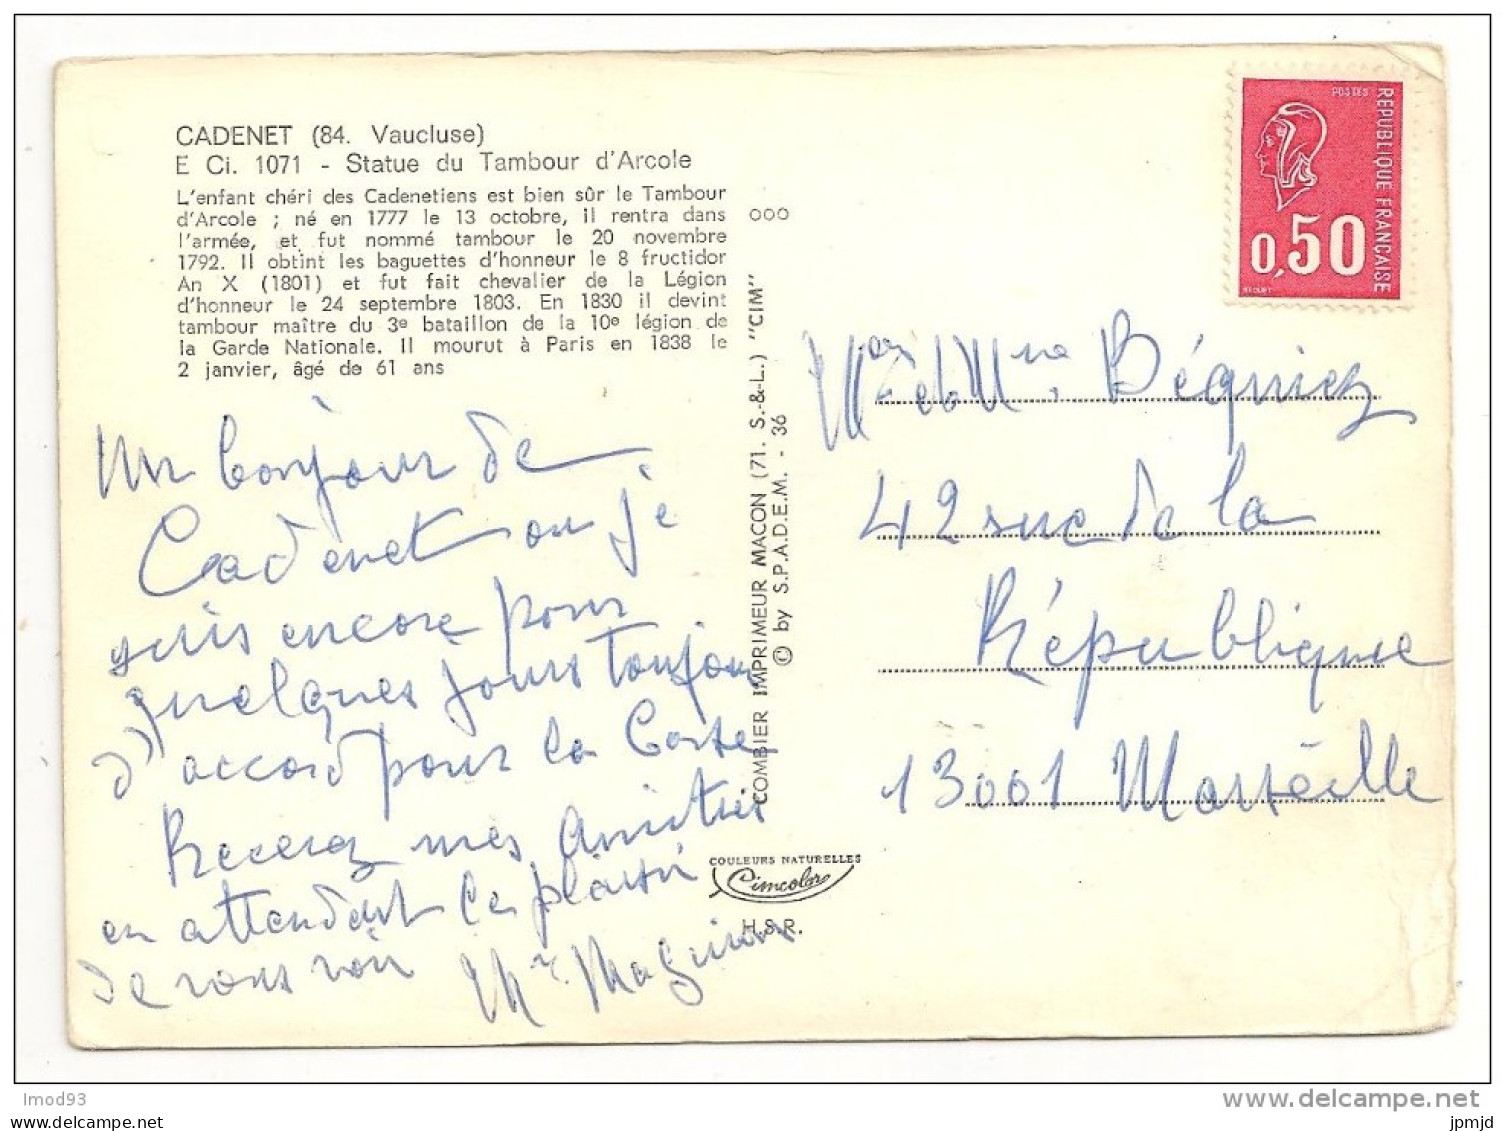 CADENET (84. Vaucluse)
E Ci. 1071 - Statue du Tambour d'Arcole
L'enfant chéri des Cadenetiens est bien sûr le Tambour
d'Arcole ; né en 1777 le 13 octobre, il rentra dans
l'armée, et fut nommé tambour le 20 novembre
1792. Il obtint les baguettes d'honneur le 8 fructidor
An X (1801) et fut fait chevalier de la Légion
d'honneur le 24 septembre 1803. En 1830 il devint
tambour maître du 3e bataillon de la 10e légion de
la Garde Nationale. Il mourut à Paris en 1838 le
2 janvier, âgé de 61 ans
Un bonjour de
Cadenet ou je
suis encore pour
quelques jours toujours
d'accord pour la
Recevez mes amitiés
en attendant le plaisir
de vous voir
ooo
COMBIER IMPRIMEUR MACON (71. S.-&-L.) "CIM"
© by S.P.A.D.E.M. - 36
COULEURS NATURELLES
Cimcolor
H.S.R.
POSTES
REPUBLIQUE FRANÇAISE
0,50
Mr et Mme
42 rue de la
République
13001 Marseille
lmod93
www.delcampe.net
www.delcampe.net
jpmjd